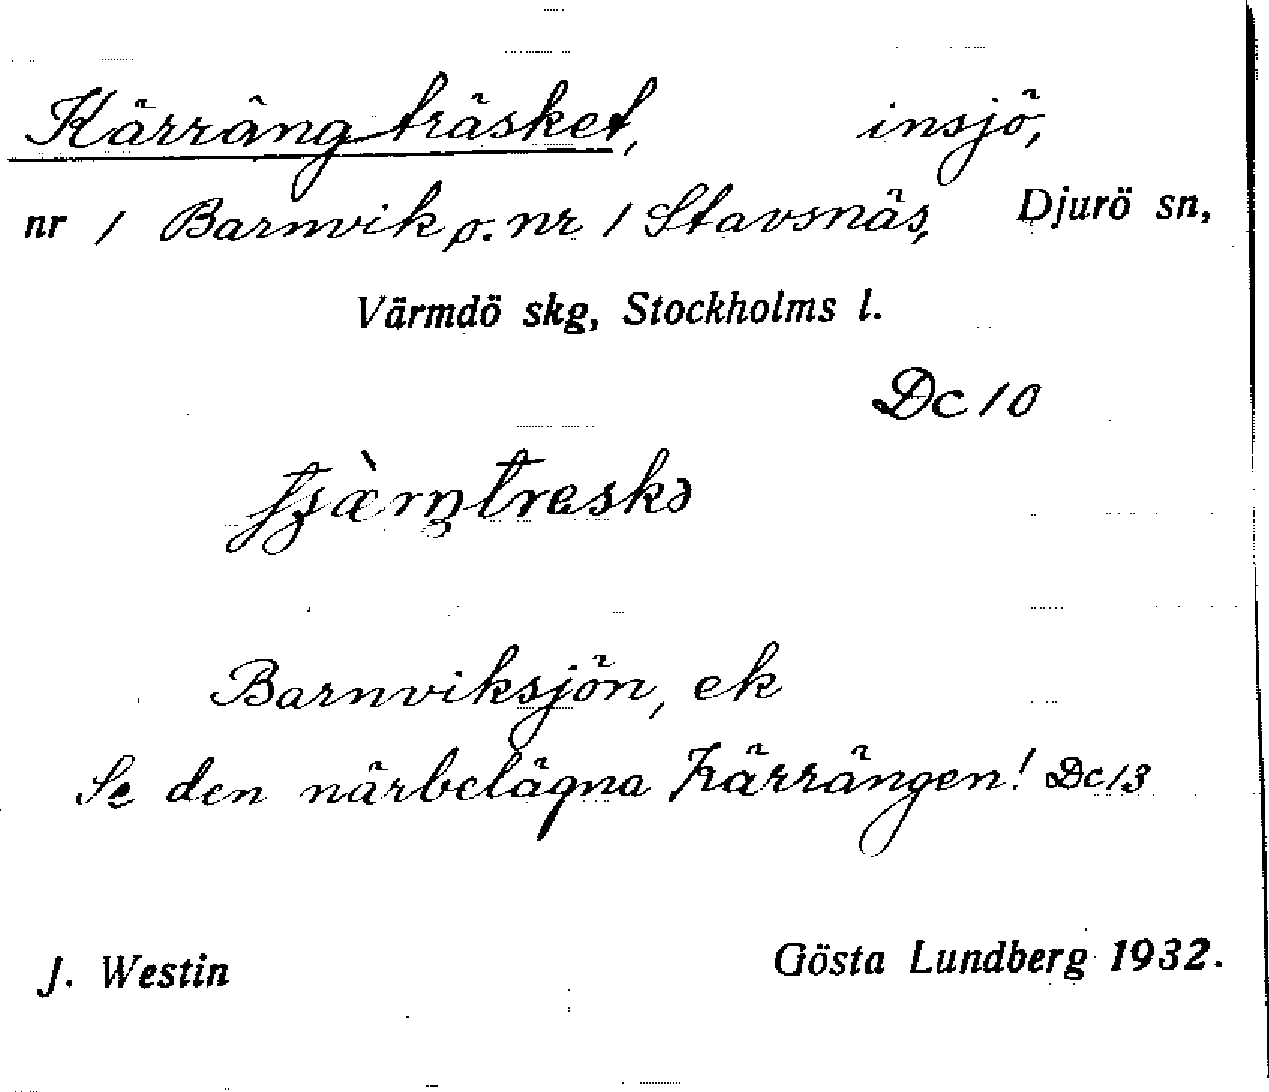 Kärrängträsket, insjö,
nr 1 Barnvik o. nr 1 Stavsnäs, Djurö sn,
Värmdö skg, Stockholms l.
Dc 10
Barnviksjön, ek
Se den närbelägna Kärrängen! Dc 13
J. Westin Gösta Lundberg 1932.